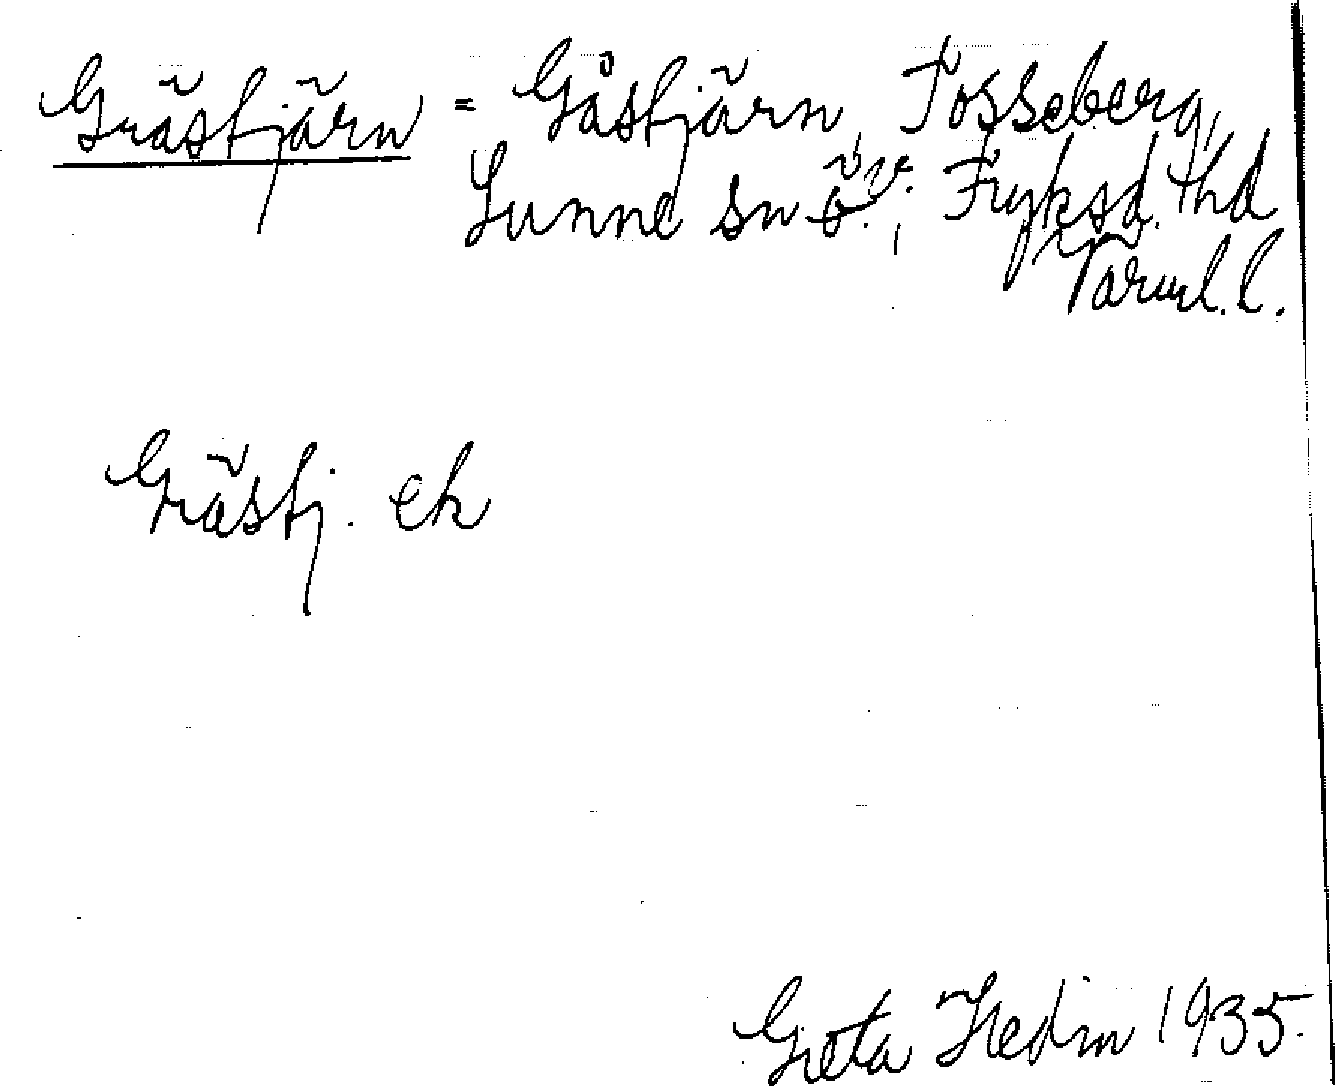 Grästjärn = Gåstjärn, Tosseberg,
Sunne sn v.; Fryksd. thd
Värml. l.
Grästj. ek
Greta Hedin 1935.